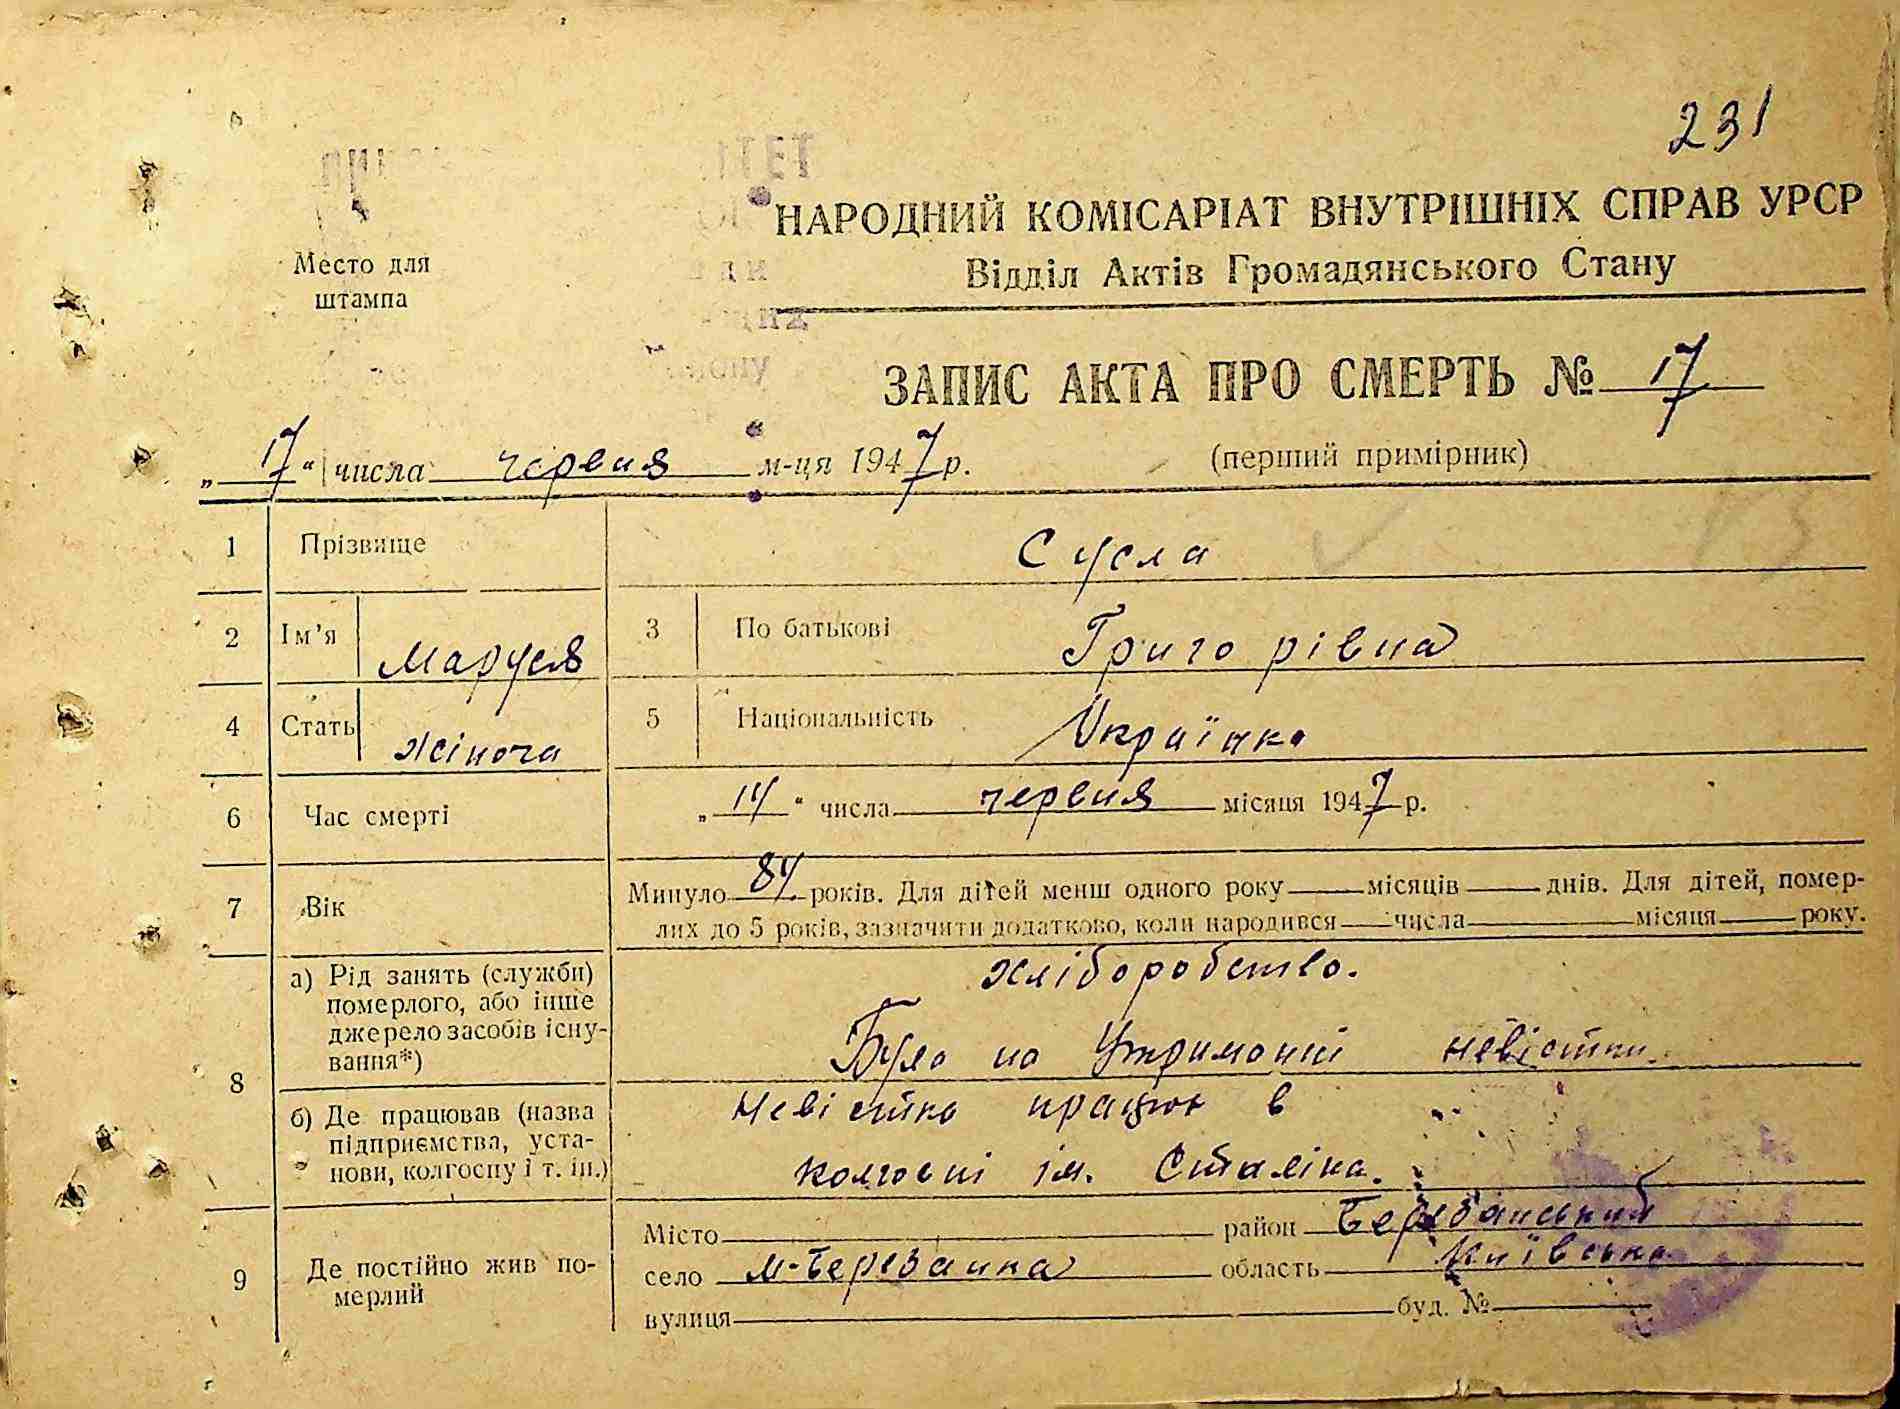 231
НАРОДНИЙ КОМІСАРІАТ ВНУТРІШНІХ СПРАВ УРСР
Место для
штампа
Відділ Актів Громадянського Стану
ЗАПИС АКТА ПРО СМЕРТЬ № 17
„17“ числа червня м-ця 1947 р. (перший примірник)
1 Прізвище Сусла
2 Ім’я Маруся 3 По батькові Григорівна
4 Стать жіноча 5 Національність Українка
6 Час смерті „14“ числа червня місяця 1947 р.
7 Вік Минуло 84 років. Для дітей менш одного року місяців днів. Для дітей, помер-
лих до 5 років, зазначити додатково, коли народився числа місяця року.
8 а) Рід занять (служби)
померлого, або інше
джерело засобів існу-
вання*)
хліборобство.
Була на утриманні невістки.
б) Де працював (назва
підприємства, уста-
нови, колгоспу і т. ін.)
Невістка працює в
колгоспі ім. Сталіна.
9 Де постійно жив по-
мерлий
Місто район Березанський
село М-Березанка область Київська
вулиця буд. №